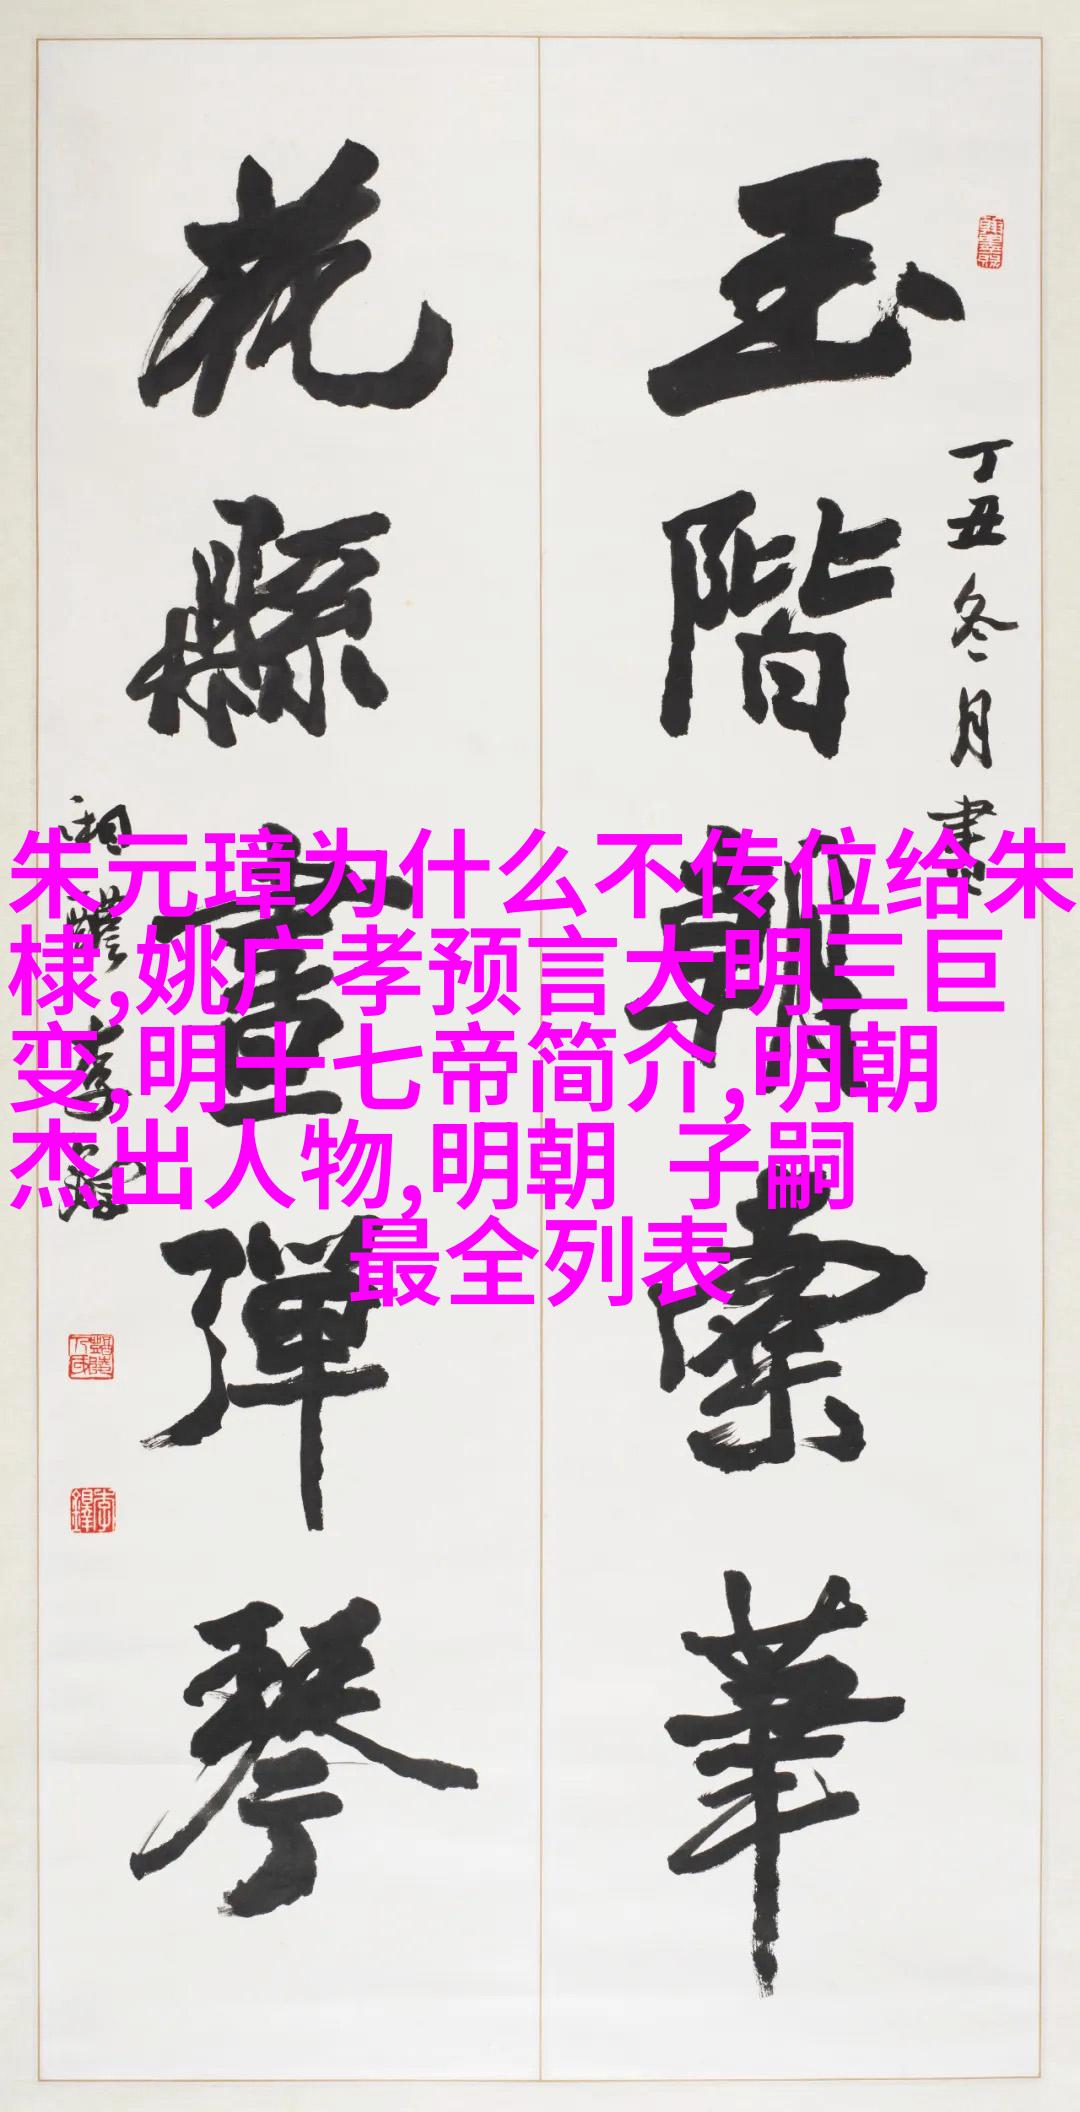 朱元璋为什么不传位给朱
棣,姚广孝预言大明三巨
变,明十七帝简介,明朝
杰出人物,明朝 子嗣
最全列表
丁丑冬月書
玉階朝紫華
花縣畫彈琴
湘潭李鐸